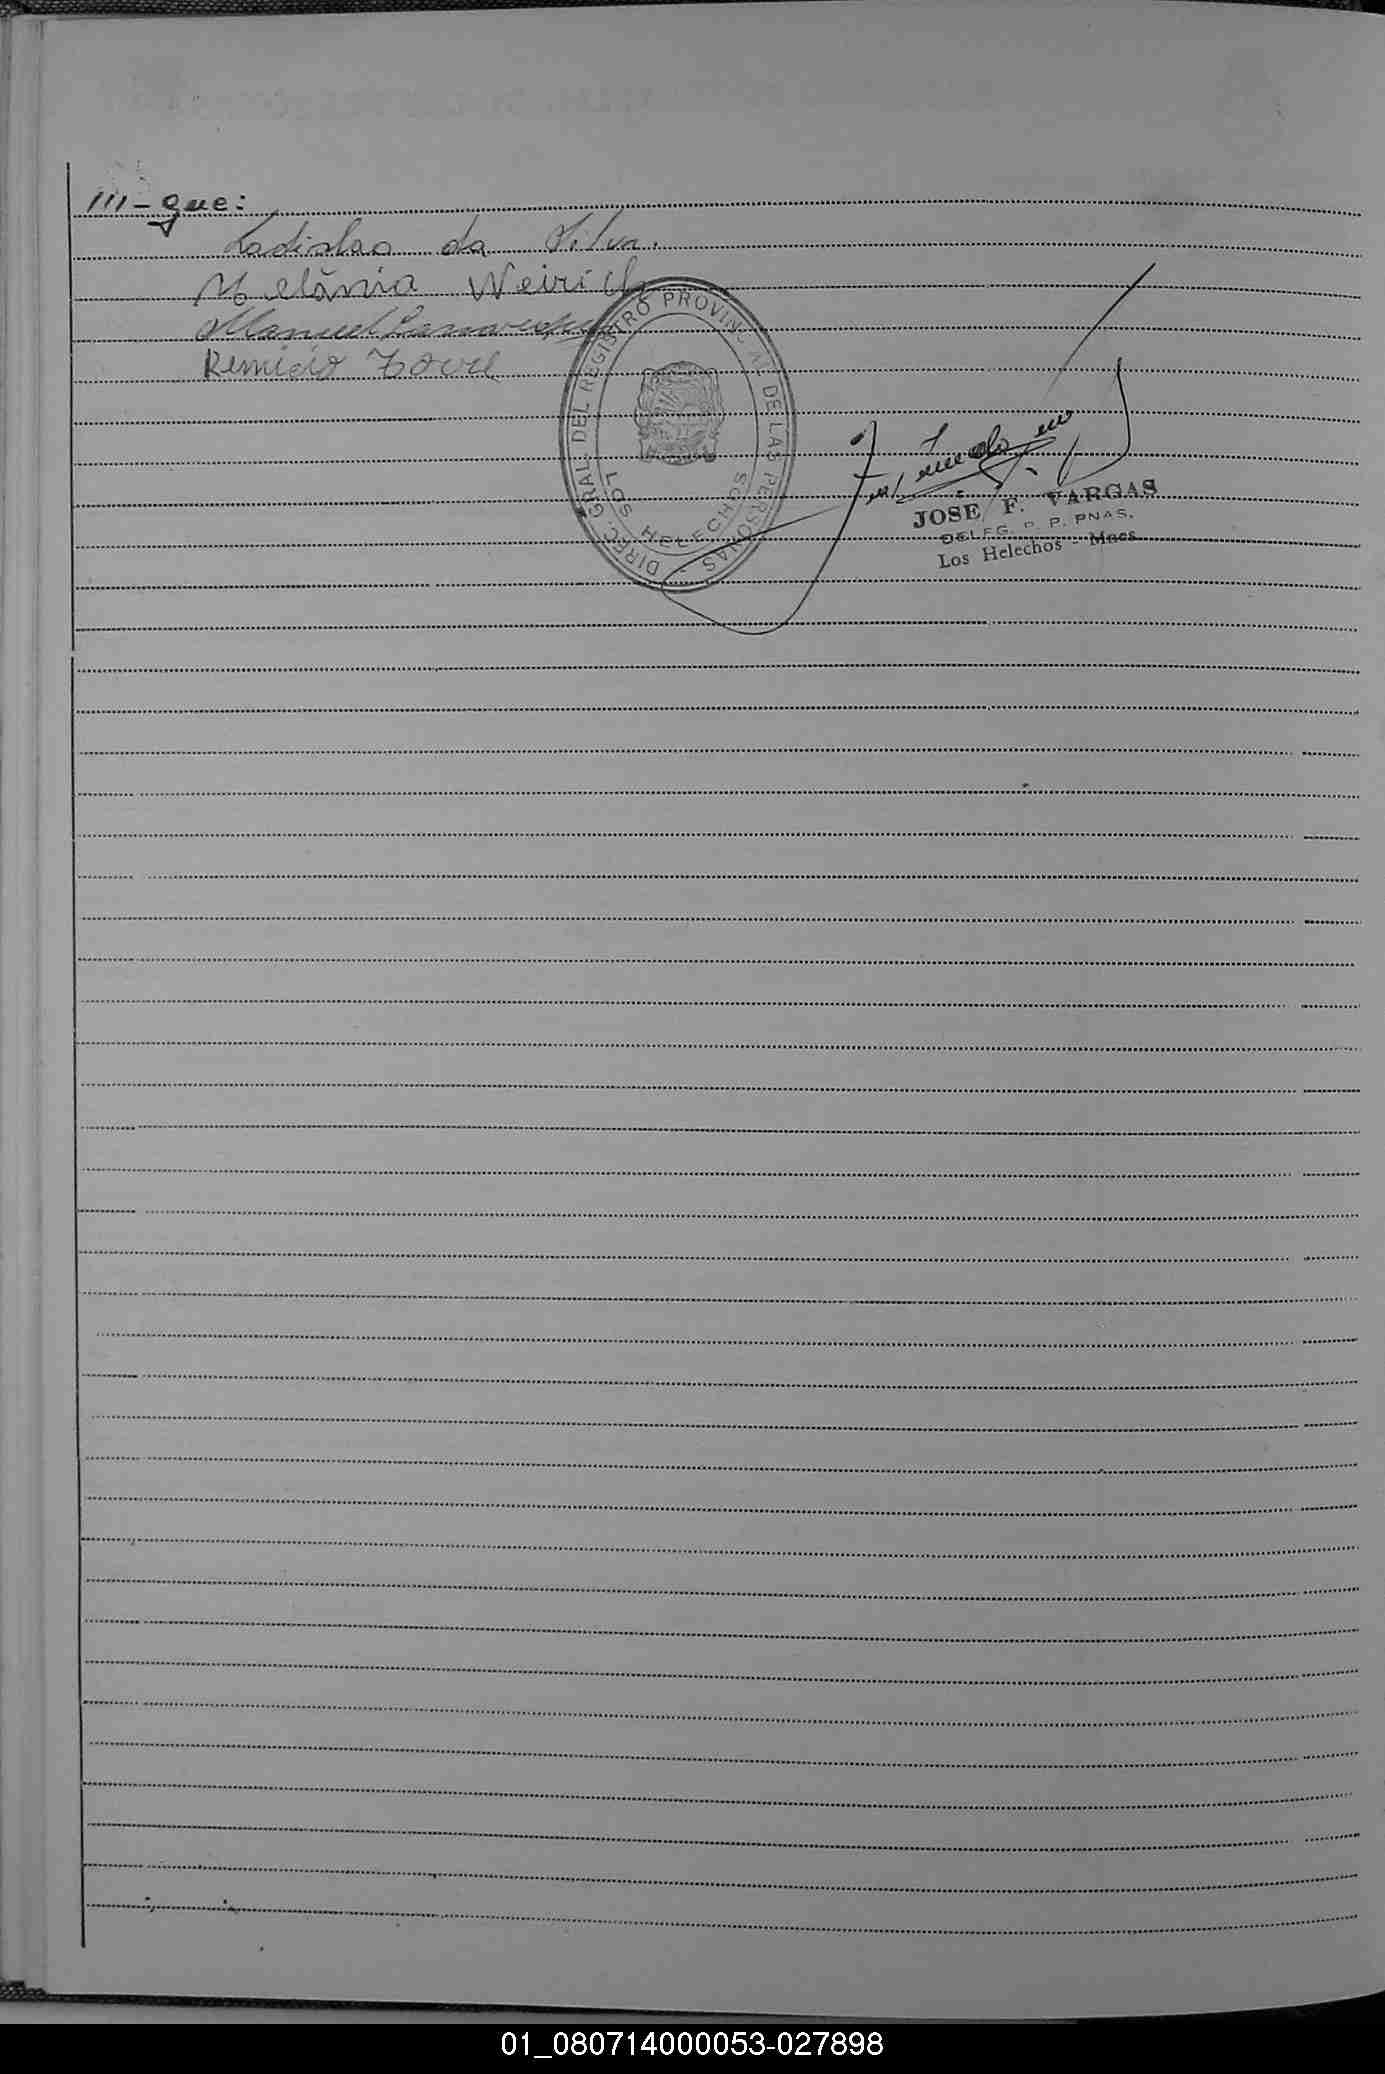 ///-que:
Ladislao da Silva.
Melánia Weirich
Manuel
Remicio
DIREC. GRAL. DEL REGISTRO PROVINCIAL DE LAS PERSONAS -
LOS HELECHOS
JOSE F. VARGAS
DELEG. R. P. PNAS.
Los Helechos - Mnes
01_080714000053-027898